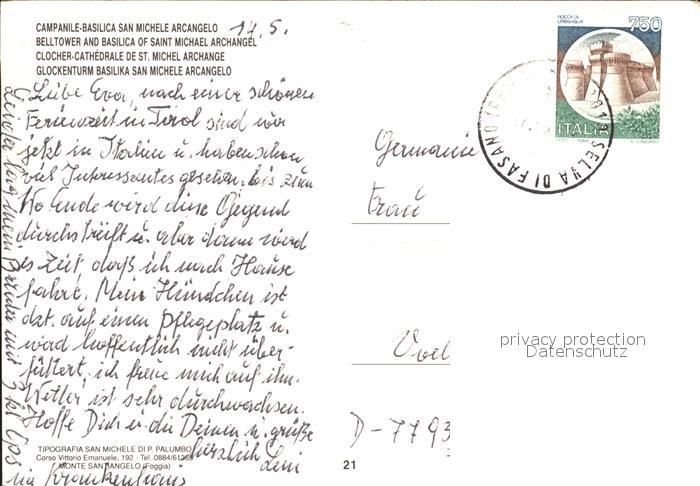 CAMPANILE-BASILICA SAN MICHELE ARCANGELO
14.5.
BELLTOWER AND BASILICA OF SAINT MICHAEL ARCHANGEL
CLOCHER-CATHÉDRALE DE ST. MICHEL ARCHANGE
GLOCKENTURM BASILIKA SAN MICHELE ARCANGELO
Liebe Eva, nach einer schönen
Ferienzeit in Tirol sind wir
jetzt in Italien u. haben schon
viel Interessantes gesehen. bis zum
Wo Ende wird diese Gegend
durchstreift u. aber dann wird
es Zeit, daß ich nach Hause
fahre. Mein Hündchen ist
dzt. auf einem Pflegeplatz u.
wird hoffentlich nicht über-
füttert, ich freue mich auf ihn.
Wetter ist sehr durchwachsen.
Hoffe Dir u. die Deinen u. grüße
herzlich Leni
Leider lag mein Bruder mit
im Krankenhaus
TIPOGRAFIA SAN MICHELE DI P. PALUMBO
Corso Vittorio Emanuele, 192 - Tel. 0884/61268
MONTE SANT'ANGELO (Foggia)
21
ROCCA DI
URBISAGLIA
750
ITALIA
SELVA DI FASANO
Germania
Frau
D-7793
privacy protection
Datenschutz